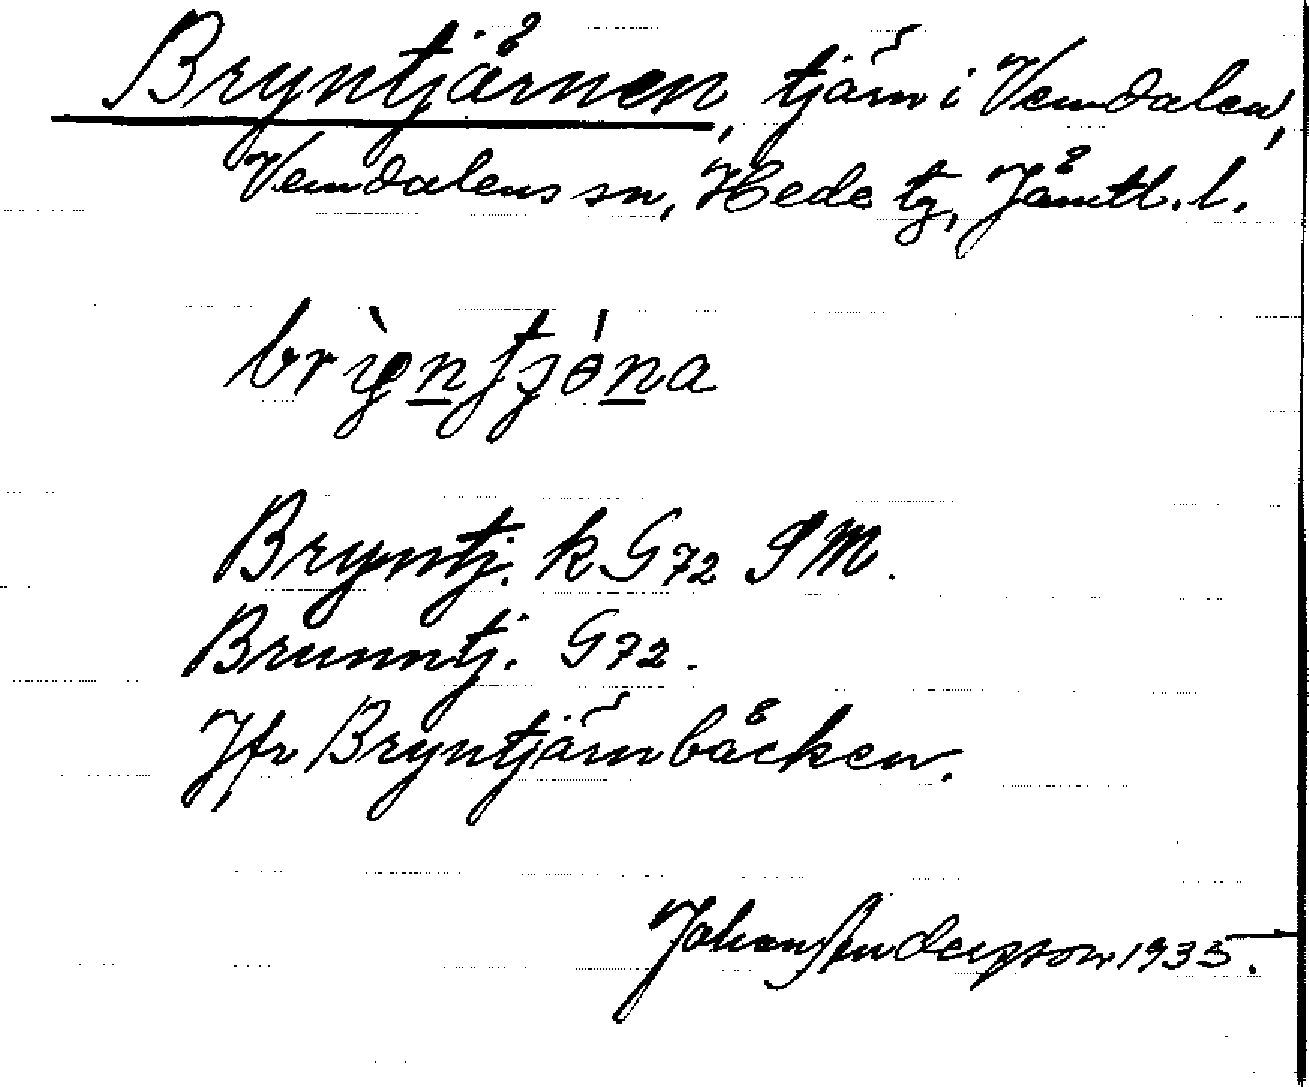 Bryntjärnen, tjärn i Vemdalen,
Vemdalens sn, Hede tg, Jämtl. l.
Bryntj. k G72 SM.
Brunntj. G72.
Jfr Bryntjärnbäcken.
Johan Anderson 1935.